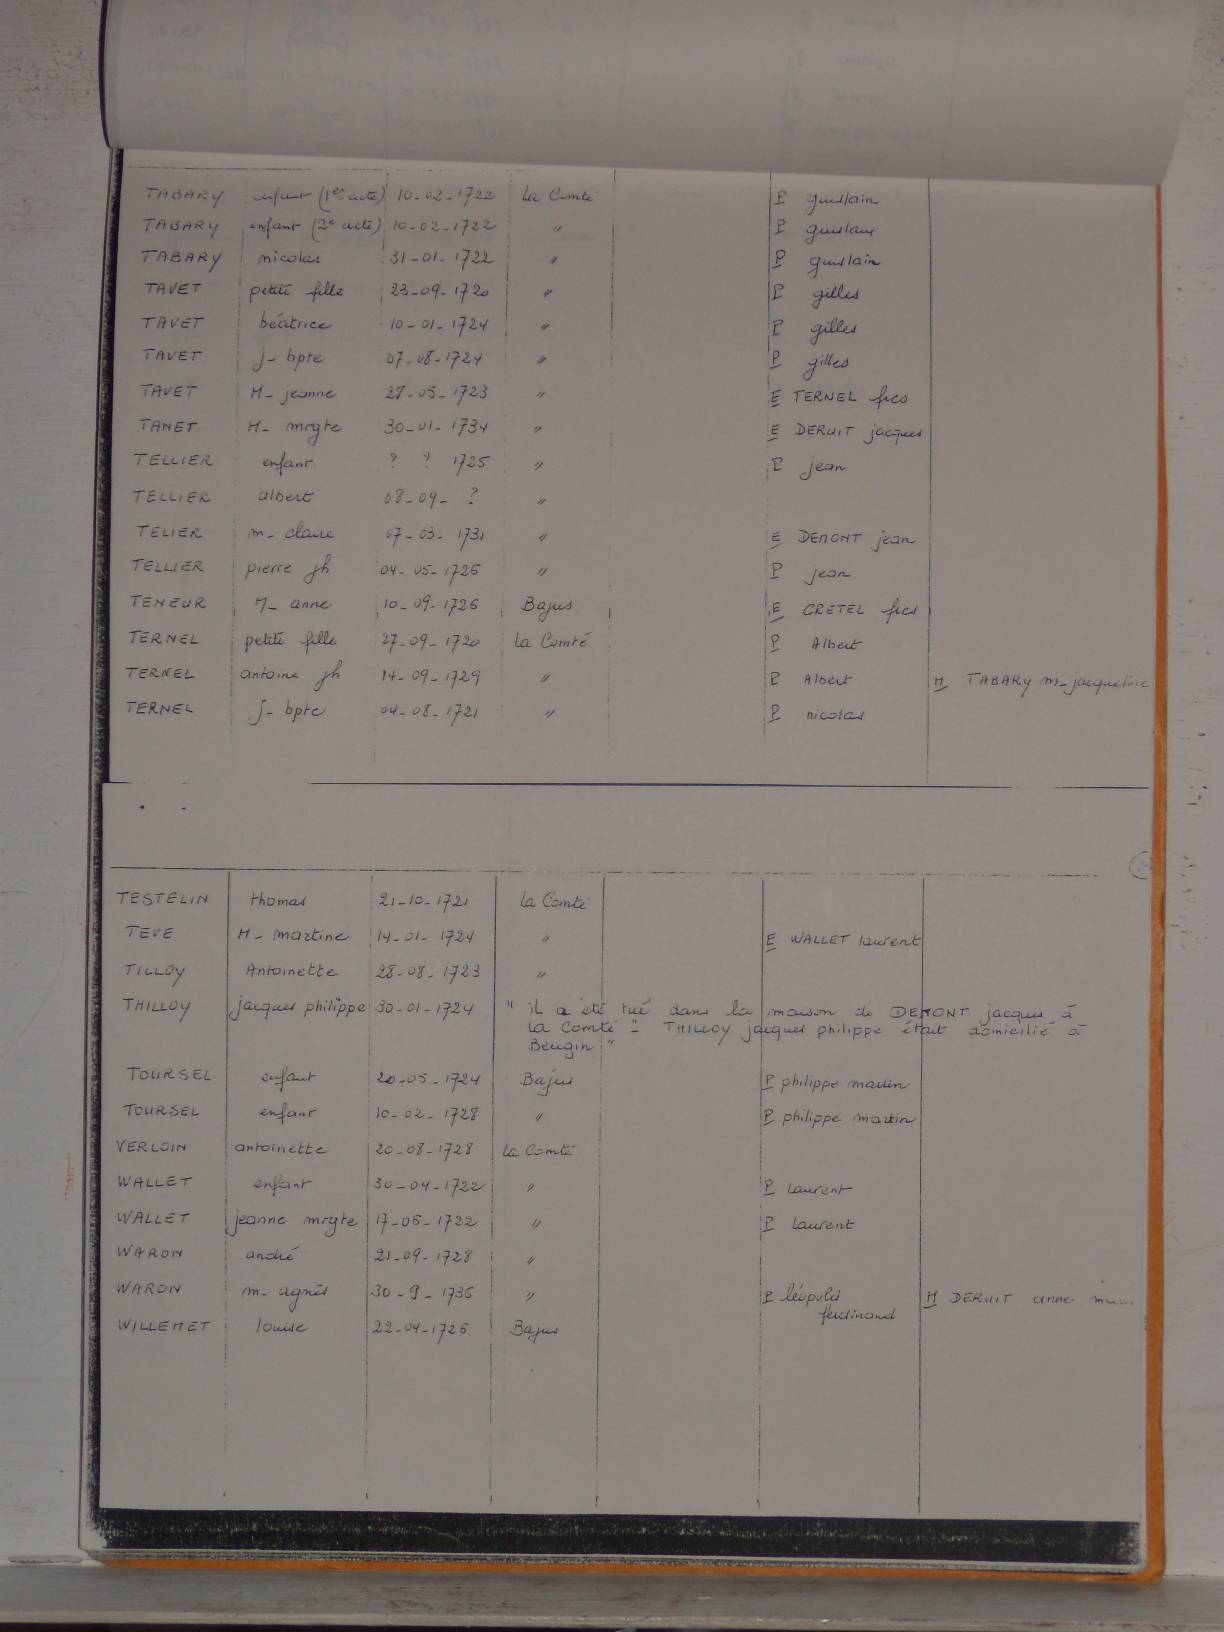 TABARY enfant (1er acte) 10-02-1722 La Comté P guislain
TABARY enfant (2e acte) 10-02-1722 " P guislain
TABARY nicolas 31-01-1722 " P guislain
TAVET petite fille 23-09-1720 " P gilles
TAVET béatrice 10-01-1724 " P gilles
TAVET j-bpte 07-08-1724 " P gilles
TAVET M-jeanne 27-05-1723 " E TERNEL fcs
TANET M-mrgte 30-01-1734 " E DERUIT jacques
TELLIER enfant ? ? 1725 " P jean
TELLIER albert 08-09-? "
TELIER m-claire 07-03-1731 " E DEMONT jean
TELLIER pierre jh 04-05-1726 " P jean
TENEUR M-anne 10-09-1726 Bajus E CRETEL fcs
TERNEL petite fille 27-09-1720 La Comté P Albert
TERNEL antoine jh 14-09-1729 " P Albert M TABARY m-jacqueline
TERNEL j-bpte 04-08-1721 " P nicolas
TESTELIN thomas 21-10-1721 La Comté
TEVE M-martine 14-01-1724 " E WALLET laurent
TILLOY Antoinette 28-08-1723 "
THILLOY jacques philippe 30-01-1724 " il a été tué dans la maison de DEMONT jacques à
La Comté - THILLOY jacques philippe était domicilié à
Beugin "
TOURSEL enfant 20-05-1724 Bajus P philippe martin
TOURSEL enfant 10-02-1728 " P philippe martin
VERLOIN antoinette 20-08-1728 La Comté
WALLET enfant 30-04-1722 " P laurent
WALLET jeanne mrgte 17-06-1722 " P laurent
WARON andré 21-09-1728 "
WARON m-agnès 30-9-1736 " P léopold M DERUIT anne
ferdinand
WILLEMET louise 22-04-1726 Bajus